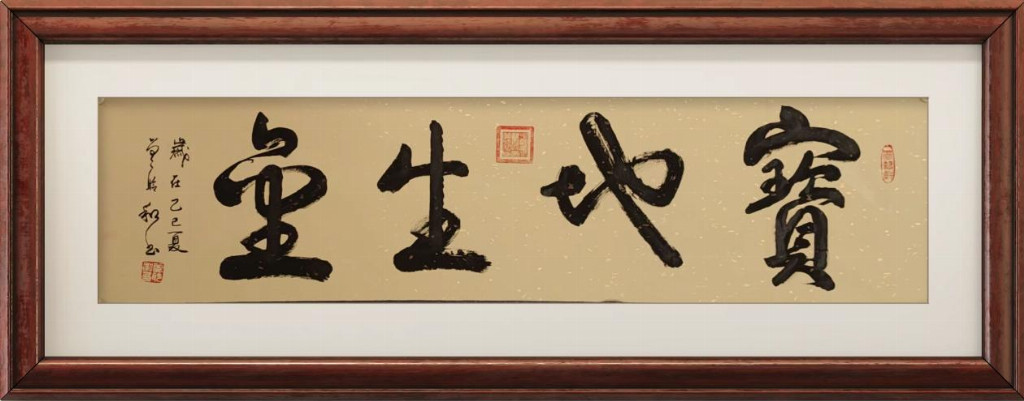 寶地生金
歲在乙巳夏